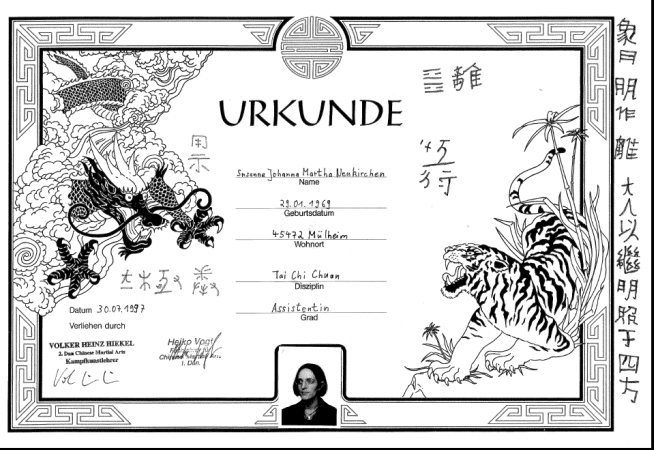 URKUNDE
Susanne Johanna Martha Neukirchen
Name
29.01.1969
Geburtsdatum
45472 Mülheim
Wohnort
Tai Chi Chuan
Disziplin
Assistentin
Grad
Datum 30.07.1997
Verliehen durch
VOLKER HEINZ HIEKEL
2. Dan Chinese Martial Arts
Kampfkunstlehrer
Heiko Vogt
1. Dan.
離
象曰 明作離 大人以繼明照于四方